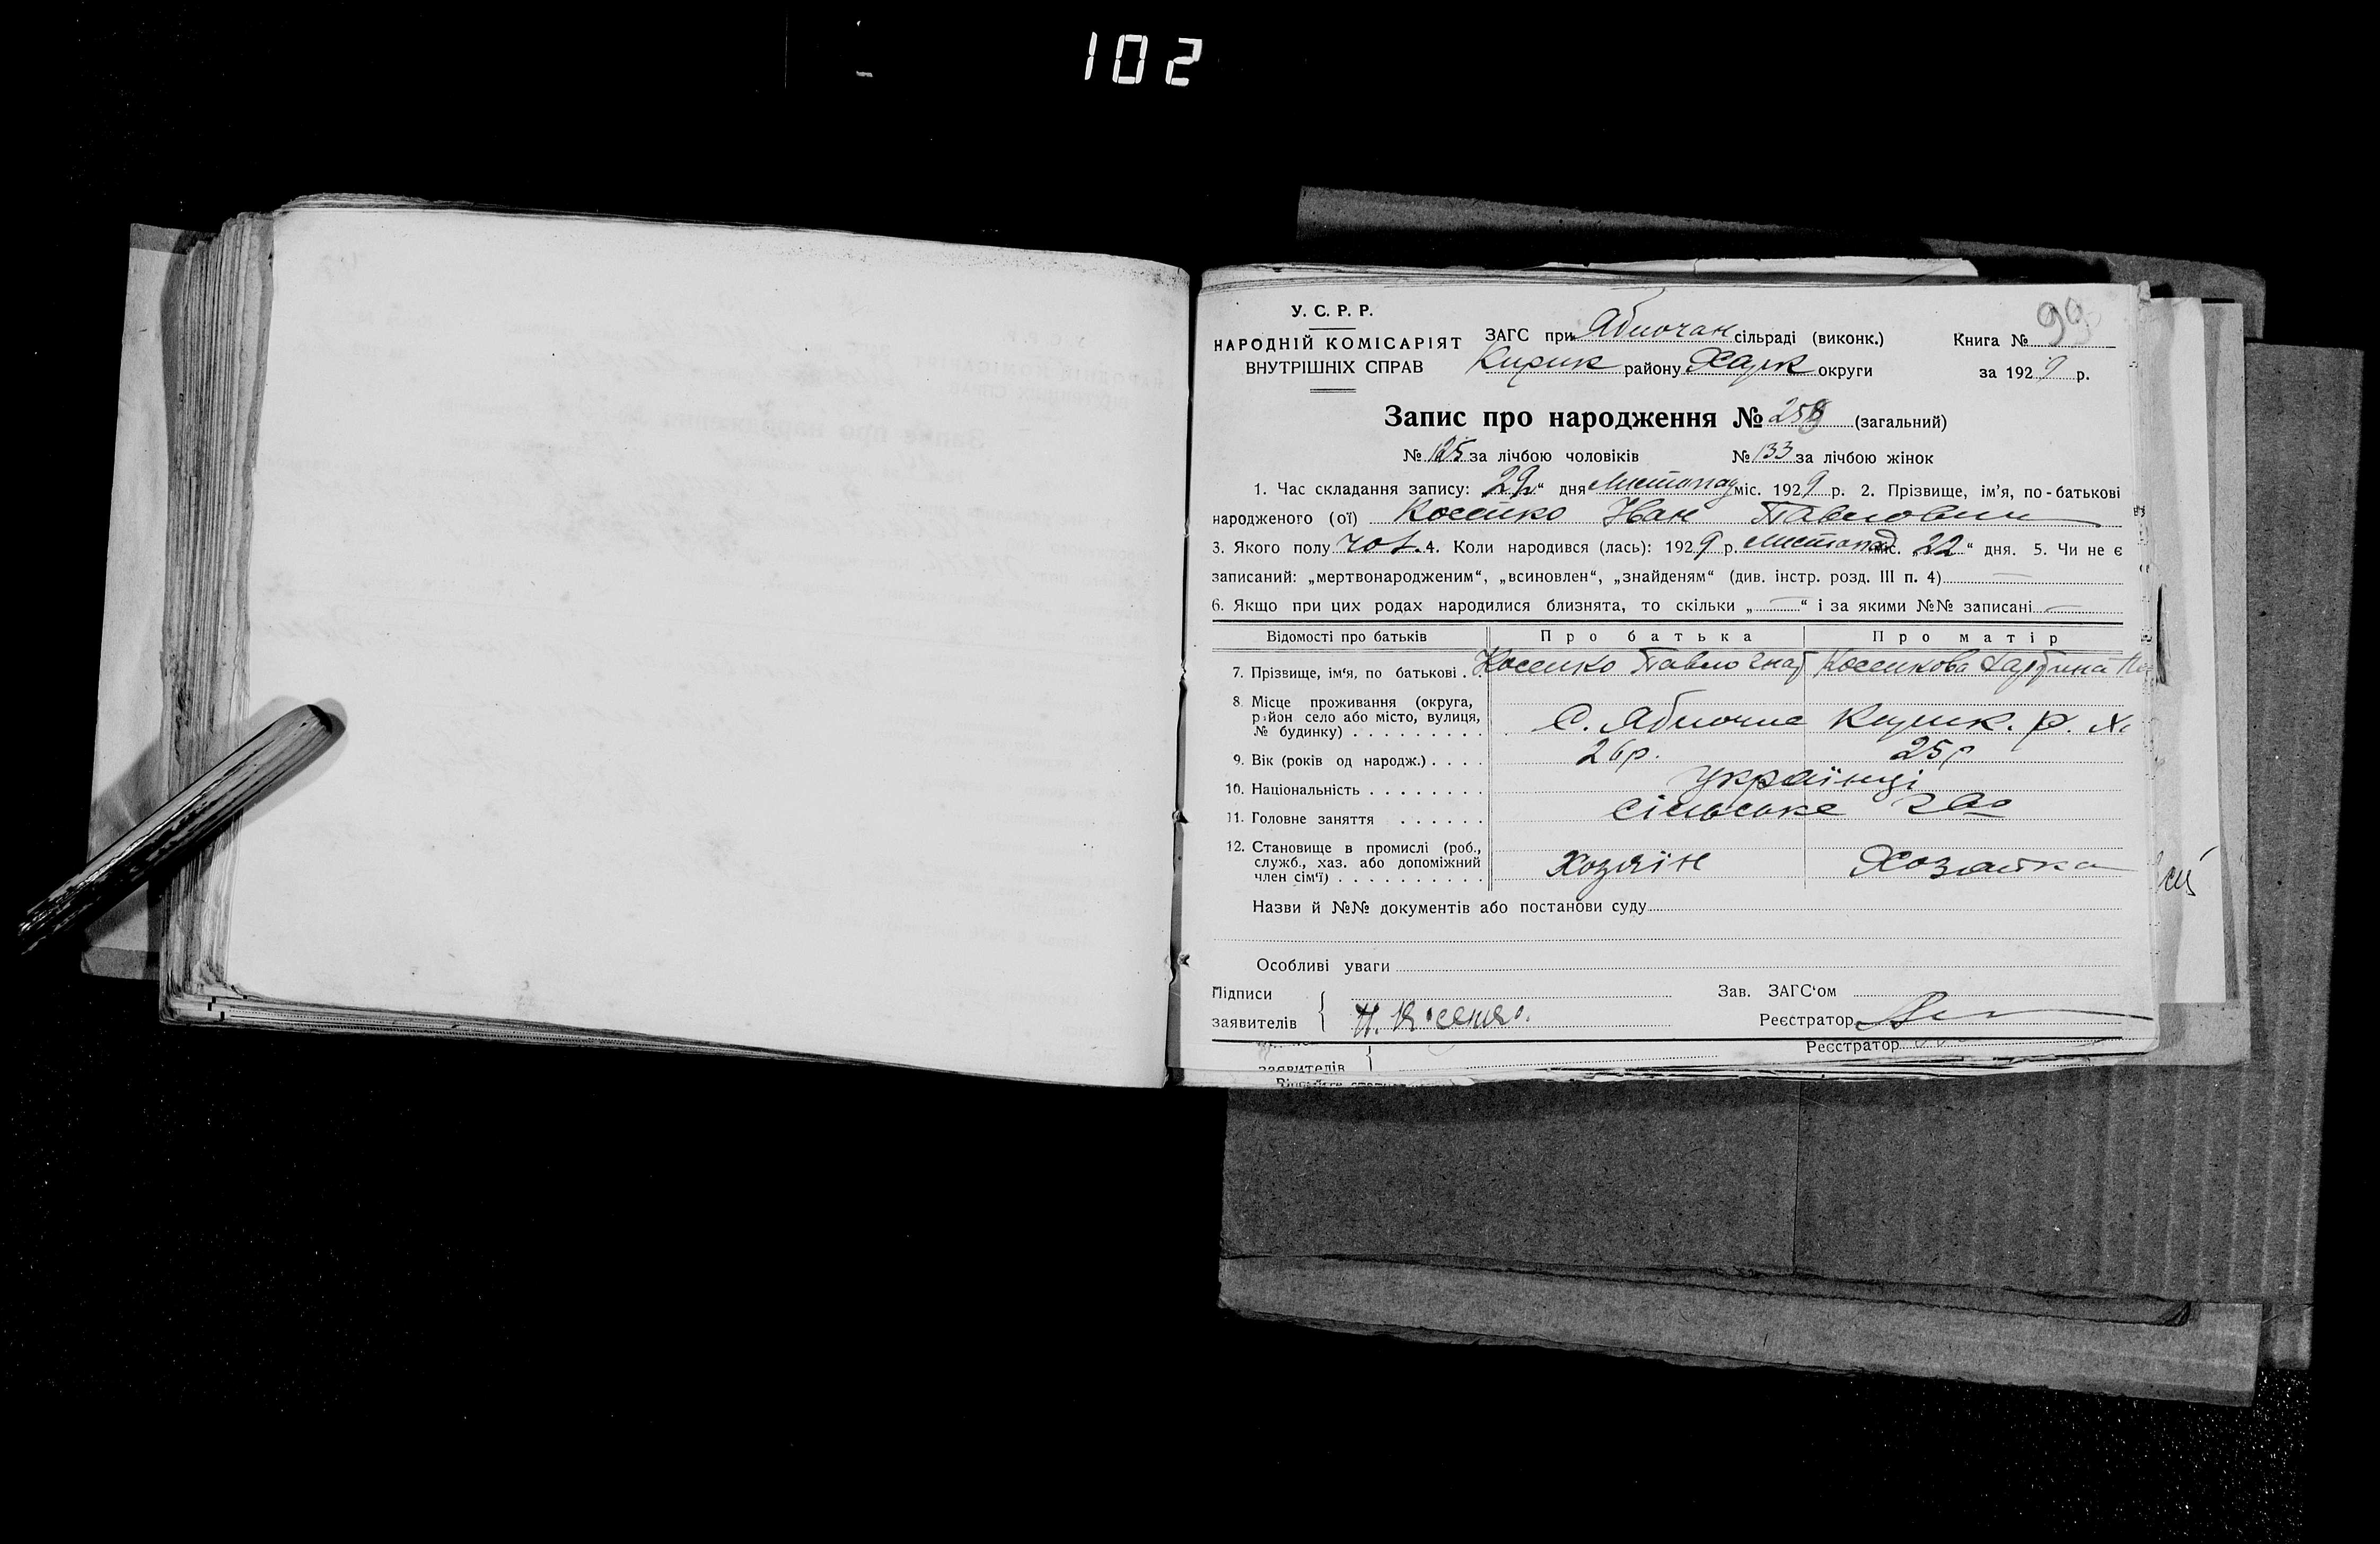 102
У. С. Р. Р.
НАРОДНІЙ КОМІСАРІЯТ
ВНУТРІШНІХ СПРАВ
99
ЗАГС при Яблочан сільраді (виконк.) Книга №
району Харк округи за 1929 р.
Запис про народження № 258 (загальний)
№ 125 за лічбою чоловіків № 133 за лічбою жінок
1. Час складання запису: " дня Листопад міс. 1929 р. 2. Прізвище, ім'я, по-батькові
народженого (ої) Косенко Іван Павлович
3. Якого полу чол. 4. Коли народився (лась): 1929 р. листопад міс. „22“ дня. 5. Чи не є
записаний: „мертвонародженим“, „всиновлен“, „знайденям“ (див. інстр. розд. III п. 4) —
6. Якщо при цих родах народилися близнята, то скільки „—“ і за якими №№ записані —
Відомості про батьків Про батька Про матір
7. Прізвище, ім'я, по батькові . Косенко Павло Косенкова
8. Місце проживання (округа,
район село або місто, вулиця,
№ будинку) . . . . . . . . . С. Яблочне р. Х
9. Вік (років од народж.) . . . . 26р. 25р
10. Національність . . . . . . . . українці
11. Головне заняття . . . . . . сільське
12. Становище в промислі (роб.,
служб., хаз. або допоміжний
член сім'ї) . . . . . . . . . . Хозяїн Хозяйка
Назви й №№ документів або постанови суду
Особливі уваги
Підписи Зав. ЗАГС'ом
заявителів Косенко Реєстратор
Реєстратор
заявителів